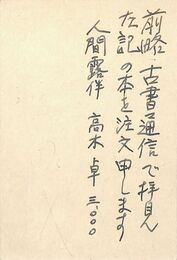 前略 古書通信で拝見
左記の本を注文申します
人間露伴 高木卓 三、〇〇〇